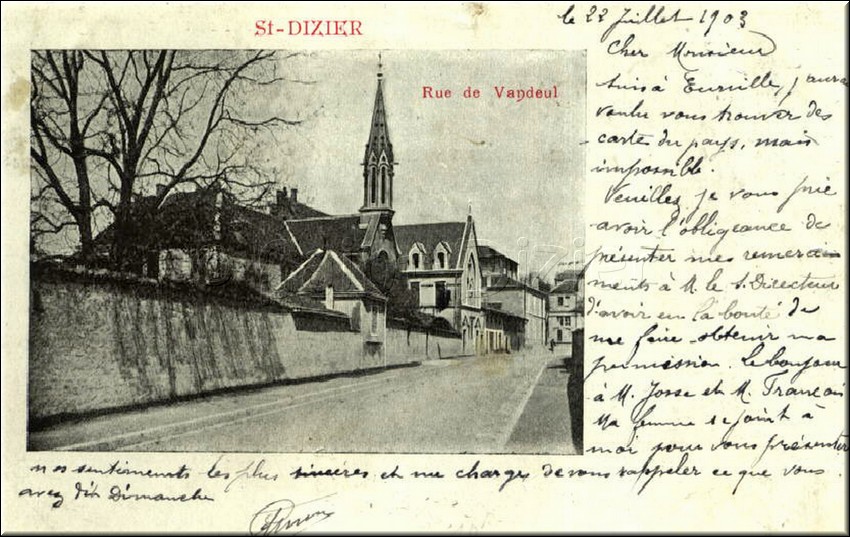 St-DIZIER
Rue de Vandeul
le 22 Juillet 1903
Cher Monsieur
Suis à Eurville, j'aurai
voulu vous trouver des
carte du pays, mais
impossible.
Veuillez, je vous prie
avoir l'obligeance de
présenter mes remerci
ments à M. le S. Directeur
d'avoir eu la bonté de
me faire obtenir ma
permission. Le bonjour
à M. Josse et M. François
Ma femme se joint à
moi pour vous présenter
nos sentiments les plus sincères et me charge de vous rappeler ce que vous
avez dit Dimanche